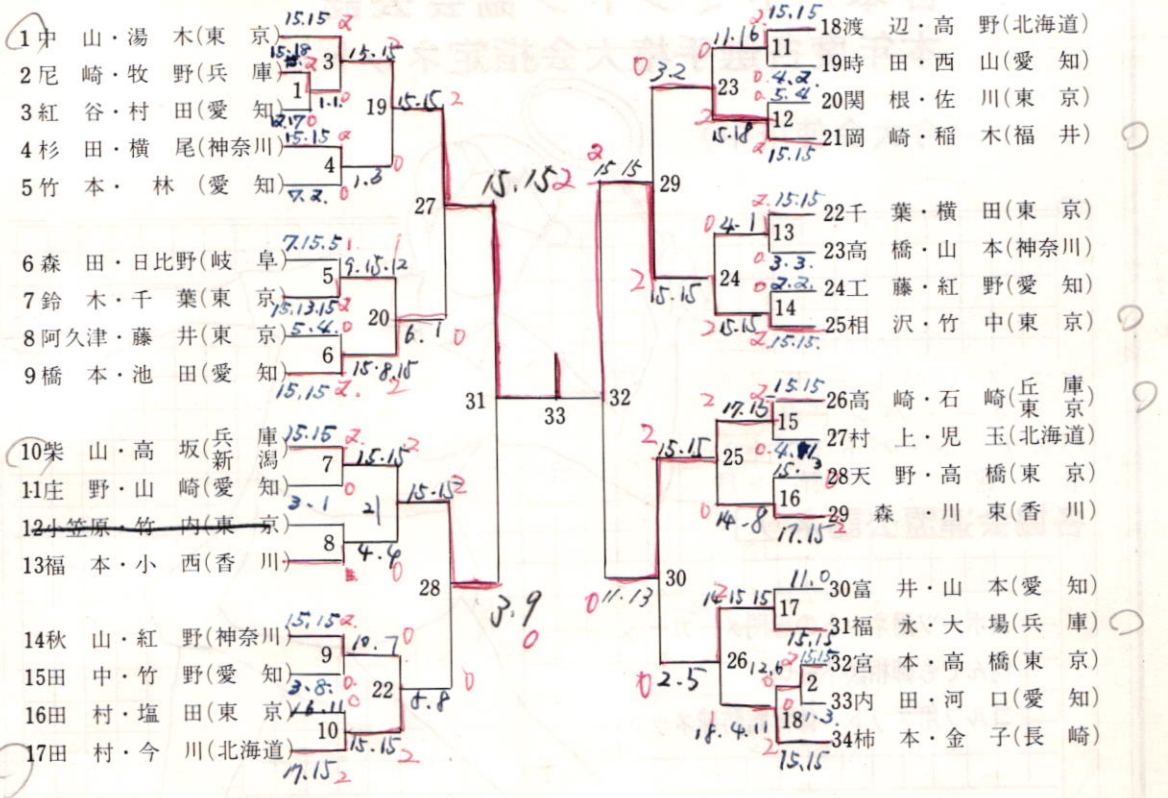 1中山・湯木(東京)
2尼崎・牧野(兵庫)
3紅谷・村田(愛知)
4杉田・横尾(神奈川)
5竹本・林(愛知)
6森田・日比野(岐阜)
7鈴木・千葉(東京)
8阿久津・藤井(東京)
9橋本・池田(愛知)
10柴山・高坂(兵庫 新潟)
11庄野・山崎(愛知)
12小笠原・竹内(東京)
13福本・小西(香川)
14秋山・紅野(神奈川)
15田中・竹野(愛知)
16田村・塩田(東京)
17田村・今川(北海道)
15.15 2
3
1
15.15
19
15.15 2
4
1.3
7.2. 0
27
15.15 2
7.15.5
5
9.15.12
15.13.15 2
20
6.1 0
5.4. 0
6
15.8.15
15,15 2.
31
33
32
7
15.15
3.1
21
15.15 2
8
4.4
28
3.9
0
15,15 2.
9
10.7
3.8. 0
22
8.8
10
15.15
17.15 2
18渡辺・高野(北海道)
19時田・西山(愛知)
20関根・佐川(東京)
21岡崎・稲木(福井)
22千葉・横田(東京)
23高橋・山本(神奈川)
24工藤・紅野(愛知)
25相沢・竹中(東京)
26高崎・石崎(丘庫 東京)
27村上・児玉(北海道)
28天野・高橋(東京)
29森・川東(香川)
30富井・山本(愛知)
31福永・大場(兵庫)
32宮本・高橋(東京)
33内田・河口(愛知)
34柿本・金子(長崎)
2. 15.15
11.16
11
0 3.2
23
0. 4.2.
0. 5.4
12
15.18
2 15.15
2 15 15
29
2. 15.15
0 4-1
13
0. 3.3.
24
2 15.15
0 2.2.
14
15.15
2. 15.15.
2 15.15
17.15
15
2 15.15
25
16
14-8
17.15 2
0 11.13
30
11.0
14 15 15
17
15,15
26
12,6
2 15,15
2
0 2.5
18
1.3.
18.4.11
2 15,15